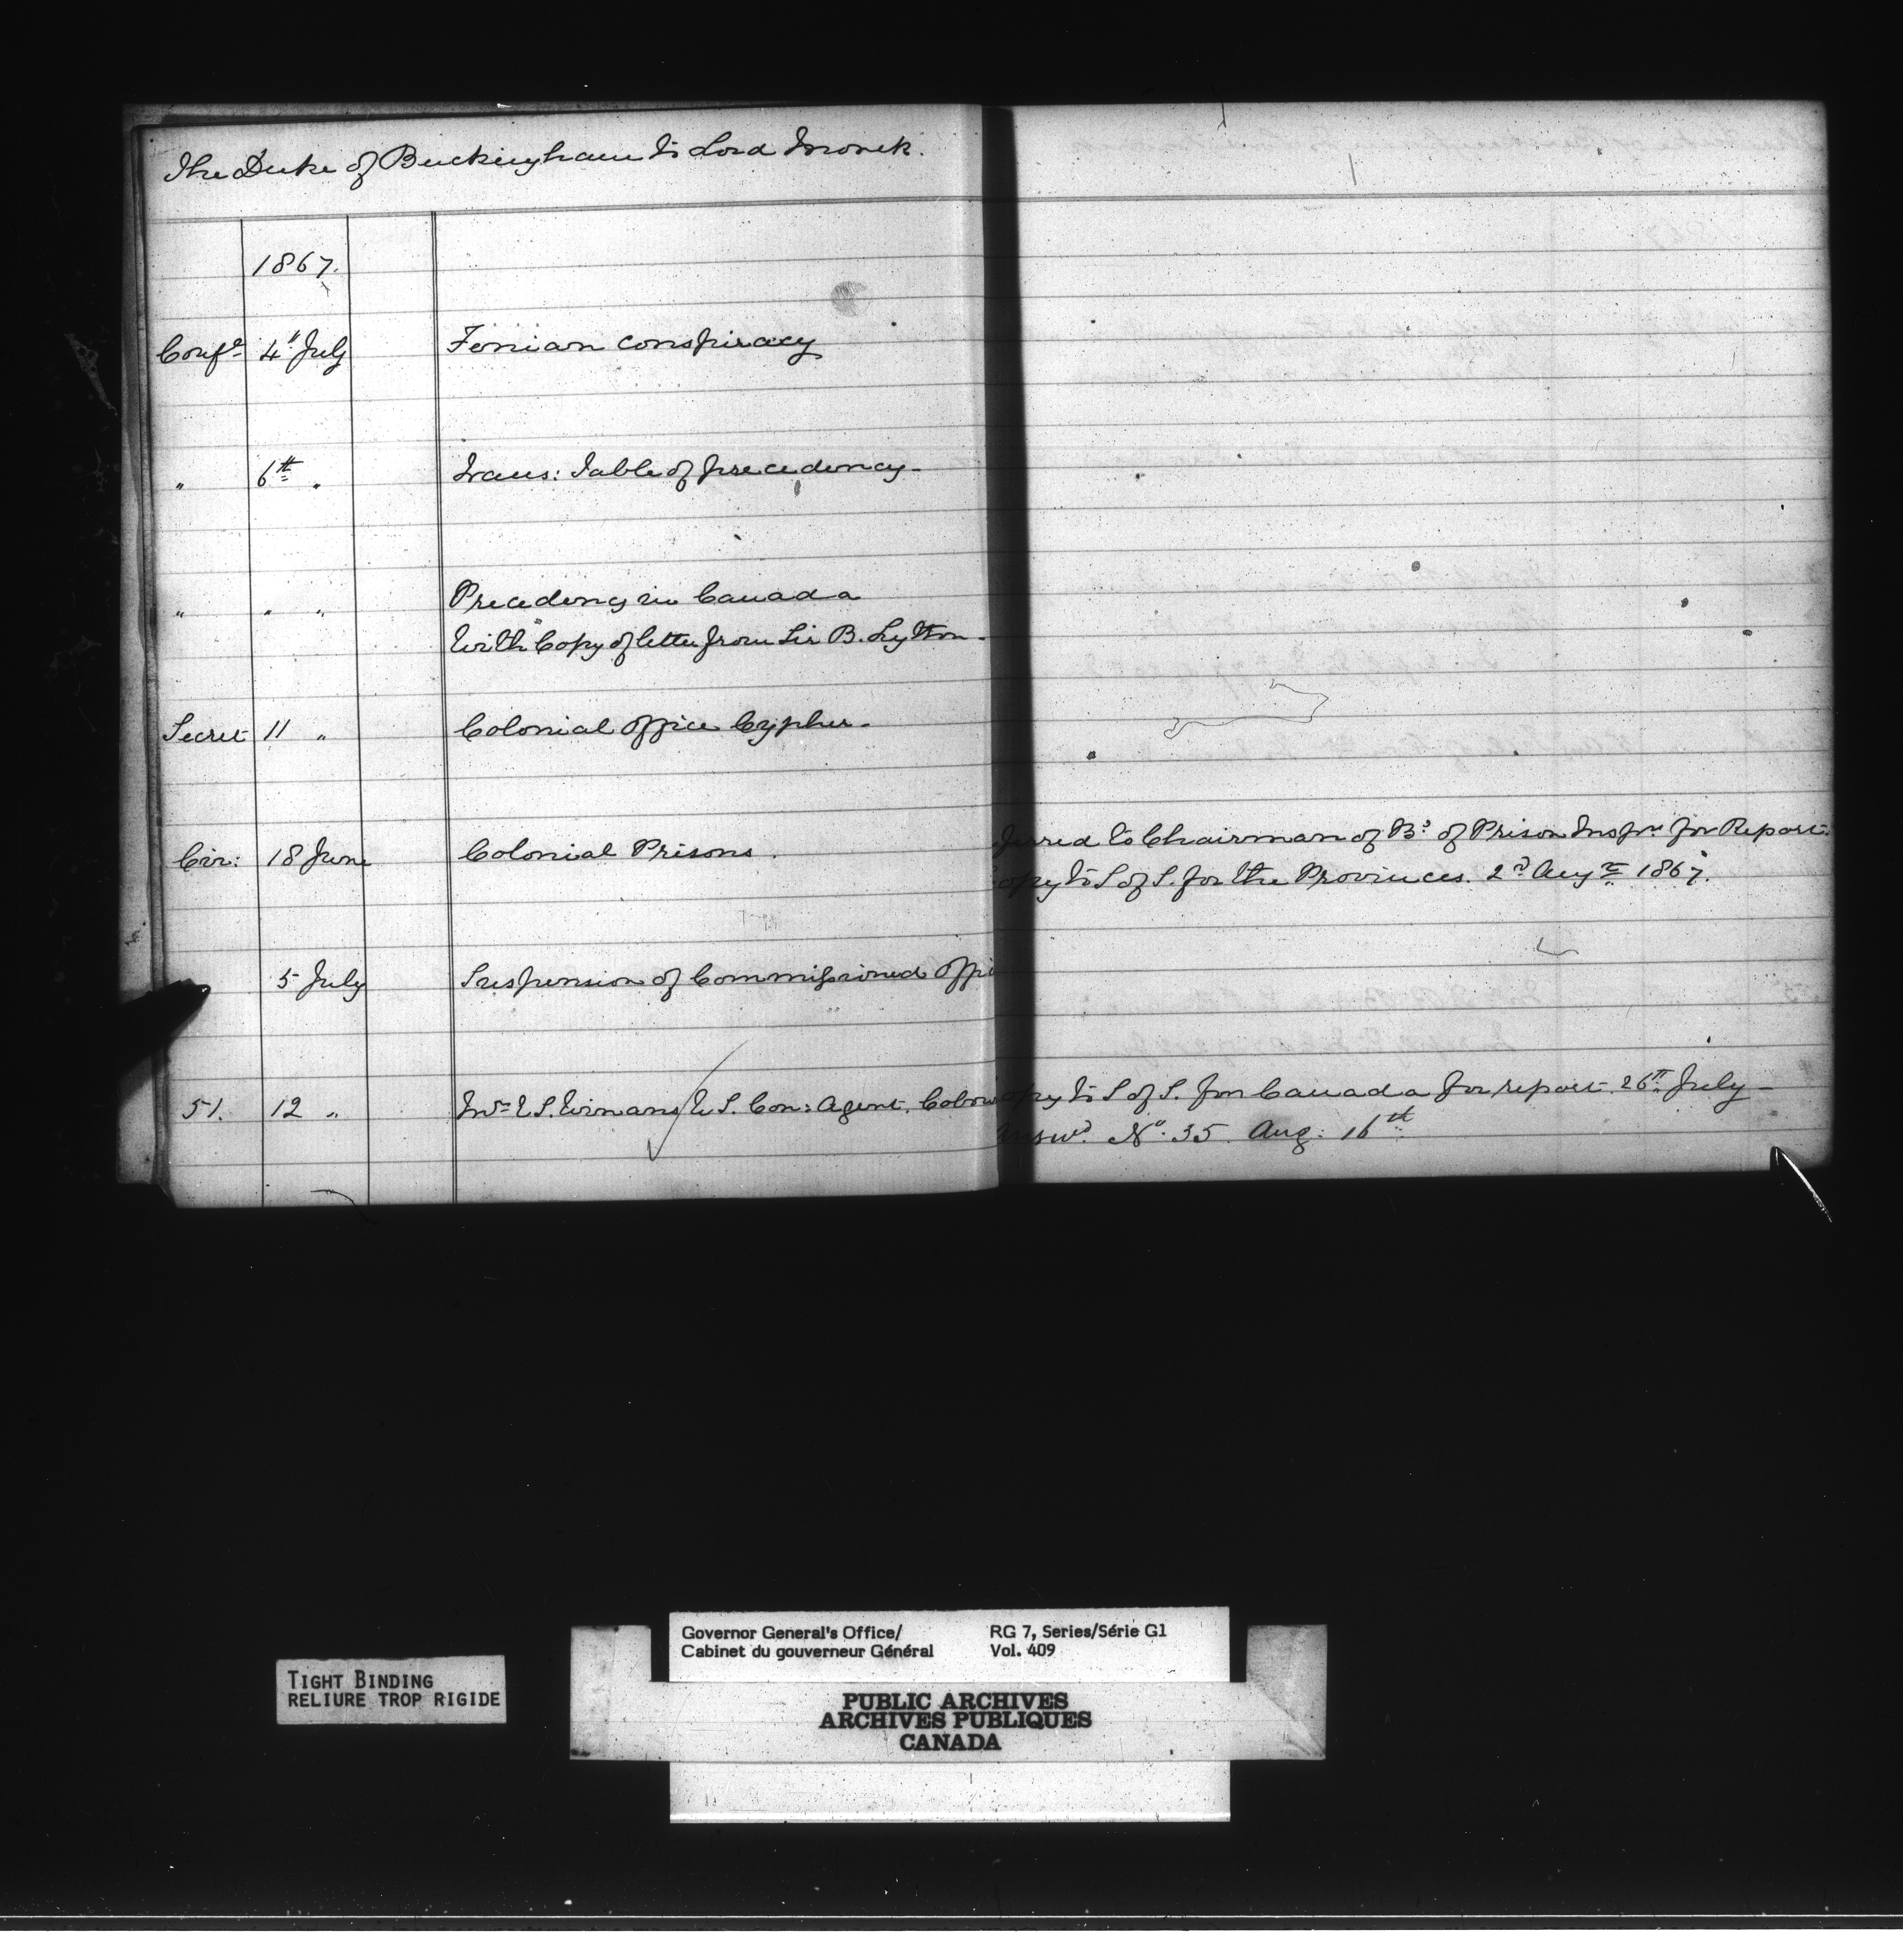 The Duke of Buckingham to Lord Monck.
1867.
Confl 4" July Fenian conspiracy
" 6th " Trans: Table of precedency-
" " " Precedency in Canada
With Copy of letter from Sir B. Lytton-
Secret 11 " Colonial Office Cypher-
Cir: 18 June Colonial Prisons. ferred to Chairman of Bd of Prison Inspn for Report.
opy to S of S. for the Provinces. 2d Augst 1867.
5 July Suspension of Commissioned Offi
51. 12 " Mr U.S. Con: Agent. opy to S of S. for Canada for report. 26th July-
answd No. 35. Aug: 16th
TIGHT BINDING
RELIURE TROP RIGIDE
Governor General's Office/ RG 7, Series/Série G1
Cabinet du gouverneur Général Vol. 409
PUBLIC ARCHIVES
ARCHIVES PUBLIQUES
CANADA